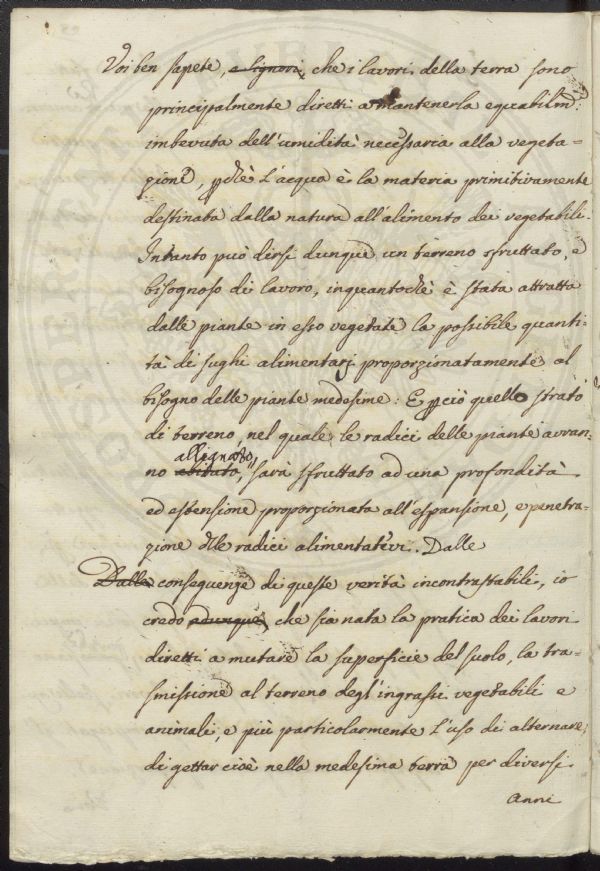 Voi ben sapete, e Signori, che i lavori della terra sono
principalmente diretti a mantenerla equabilm:
imbevuta dell'umidità necessaria alla vegeta=
zione, pchè l'acqua è la materia primitivamente
destinata dalla natura all'alimento dei vegetabili.
Intanto può dirsi dunque un terreno sfruttato, e
bisognoso di lavoro, inquantochè è stata attratta
dalle piante in esso vegetate la possibile quanti=
tà di sughi alimentarj proporzionatamente al
bisogno delle piante medesime: E pciò quello strato
di terreno, nel quale le radici delle piante avran=
allignato,
no abitato, sarà sfruttato ad una profondità
ed estensione proporzionata all'espansione, e penetra=
zione dlle radici alimentatevi. Dalle
Dalle conseguenze di queste verità incontrastabili, io
credo adunque, che sia nata la pratica dei lavori
diretti a mutare la superficie del suolo, la tra=
smissione al terreno degl'ingrassi vegetabili e
animali, e più particolarmente l'uso di alternare,
di gettar cioè nella medesima terra per diversi
anni